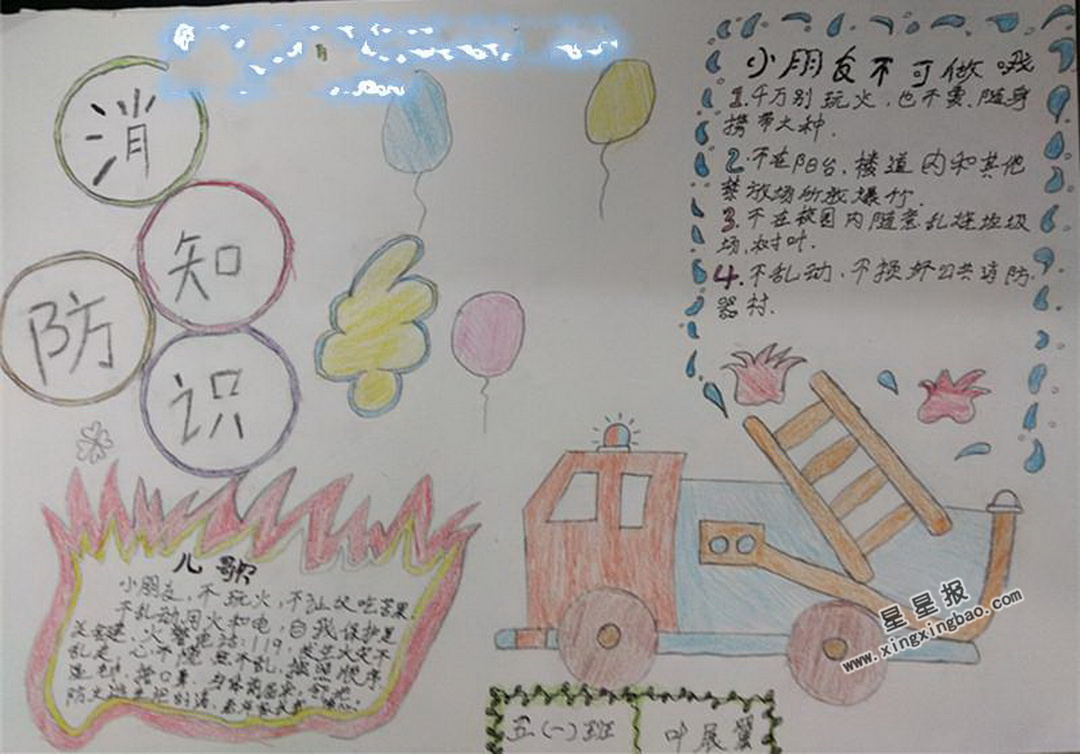 消
防
知
识
小朋友不可做哦
1.千万别玩火,也不要随身
携带火种.
2.不在阳台,楼道内和其他
禁放场所放爆竹.
3.不在校园内随意乱烧垃圾
场,树叶.
4.不乱动,不损坏公共消防
器材.
儿歌
小朋友,不玩火,不
不乱动用火和电,自我保护是
关键,火警电话119,发生火灾不
乱走,心不慌
按照顺序
捂口鼻,身体前
防火
五(一)班
叶展翼
星星报
www.xingxingbao.com